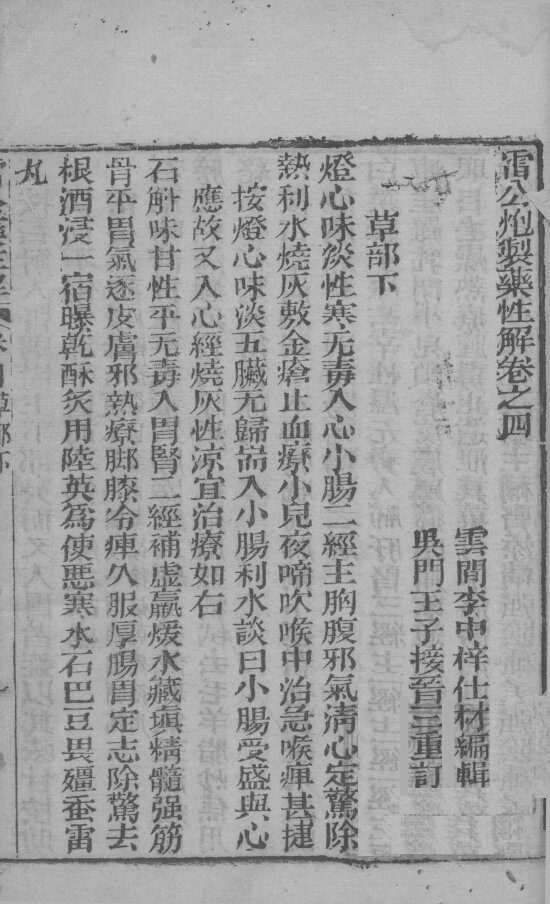 雷公炮製藥性解卷之四
雲間李中梓仕材編輯
吳門王子接晉三重訂
草部下
燈心味淡性寒无毒入心小腸二經主胸腹邪氣清心定驚除
熱利水燒灰敷金瘡止血療小兒夜啼吹喉中治急喉痺甚捷
按燈心味淡五臟无歸耑入小腸利水談曰小腸受盛與心
應故又入心經燒灰性涼宜治療如右
石斛味甘性平无毒入胃腎二經補虛羸煖水藏塡精髓强筋
骨平胃氣逐皮膚邪熱療脚膝冷痺久服厚腸胃定志除驚去
根酒浸一宿曝乾酥炙用陸英爲使惡寒水石巴豆畏殭蚕雷
丸
草部下